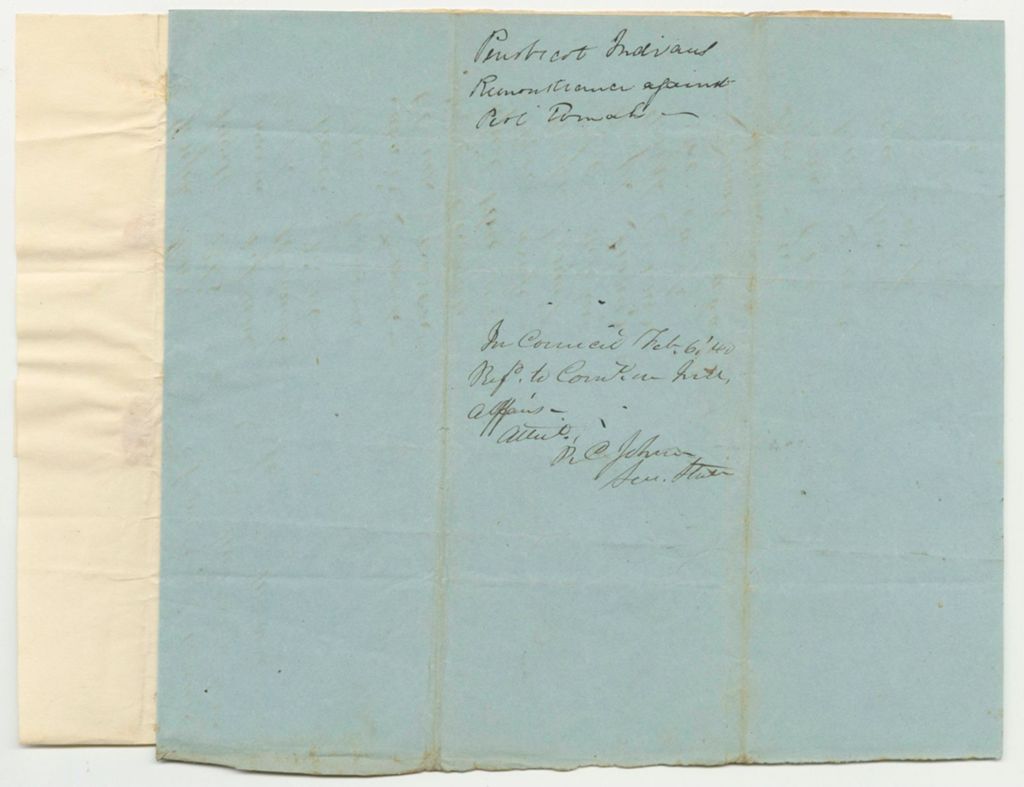 Penobscot Indians
Remonstrance against
Tomah —
In Council Feb. 6, '40
Refd. to Com. on Ind.
affairs —
Attest,
P. C. Johnson
Sec. State